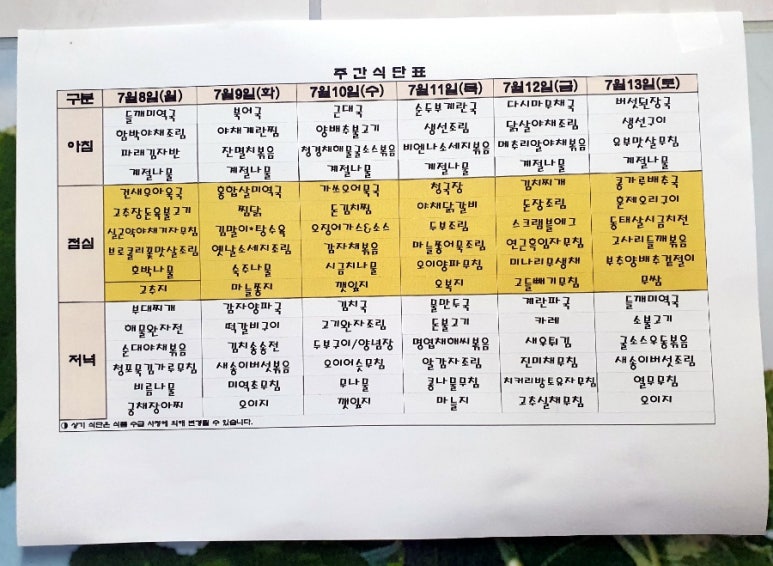 주간식단표
구분 7월8일(월) 7월9일(화) 7월10일(수) 7월11일(목) 7월12일(금) 7월13일(토)
아침
들깨미역국 북어국 근대국 순두부계란국 다시마무채국 버섯된장국
함박야채조림 야채계란찜 양배추불고기 생선조림 닭살야채조림 생선구이
파래김자반 잔멸치볶음 청경채해물굴소스볶음 비엔나소세지볶음 메추리알야채볶음 유부맛살무침
계절나물 계절나물 계절나물 계절나물 계절나물 계절나물
점심
건새우아욱국 홍합살미역국 가쓰오어묵국 청국장 김치찌개 콩가루배추국
고추장돈육불고기 찜닭 돈김치찜 야채닭갈비 돈장조림 훈제오리구이
실곤약야채겨자무침 김말이*탕수육 오징어가스*소스 두부조림 스크램블에그 동태살시금치전
브로콜리꽃맛살조림 옛날소세지조림 감자채볶음 마늘쫑어묵조림 연근유임자무침 고사리들깨볶음
호박나물 숙주나물 시금치나물 오이양파무침 미나리무생채 부추양배추겉절이
고추지 마늘쫑지 깻잎지 오복지 고들빼기무침 무쌈
저녁
부대찌개 감자양파국 김치국 물만두국 계란파국 들깨미역국
해물완자전 떡갈비구이 고기완자조림 돈불고기 카레 소불고기
순대야채볶음 김치송송전 두부구이/양념장 명엽채애씨볶음 새우튀김 굴소스우동볶음
청포묵김가루무침 새송이버섯볶음 오이어슷무침 알감자조림 진미채무침 새송이버섯조림
비름나물 미역초무침 무나물 콩나물무침 치커리방토유자무침 열무무침
궁채장아찌 오이지 깻잎지 마늘지 고추실채무침 오이지
◑ 상기 식단은 식품 수급 사정에 의해 변경될 수 있습니다.